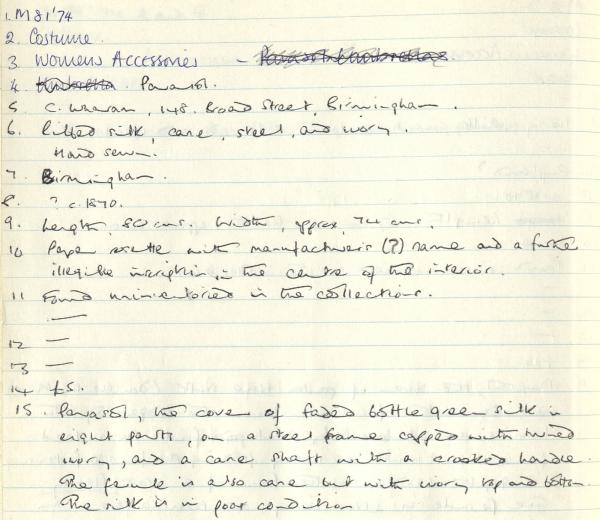 1. M81'74
2. Costume.
3 Womens Accessories -
4. Umbrella Parasol.
5 C. Wharam, 148. Broad Street, Birmingham.
6. Ribbed silk, cane, steel, and ivory.
Hand sewn.
7. Birmingham.
8. ? c.1870.
9. Length, 80 cms. Width, approx, 74 cms.
10 Paper rosette with manufacturer's (?) name and a further
illegible inscription in the centre of the interior.
11 Found uninventoried in the collections.
—
12 —
13 —
14 £5.
15. Parasol, the cover of faded bottle green silk in
eight parts, on a steel frame capped with turned
ivory, and a cane shaft with a crooked handle.
The ferrule is also cane but with ivory top and bottom.
The silk is in poor condition